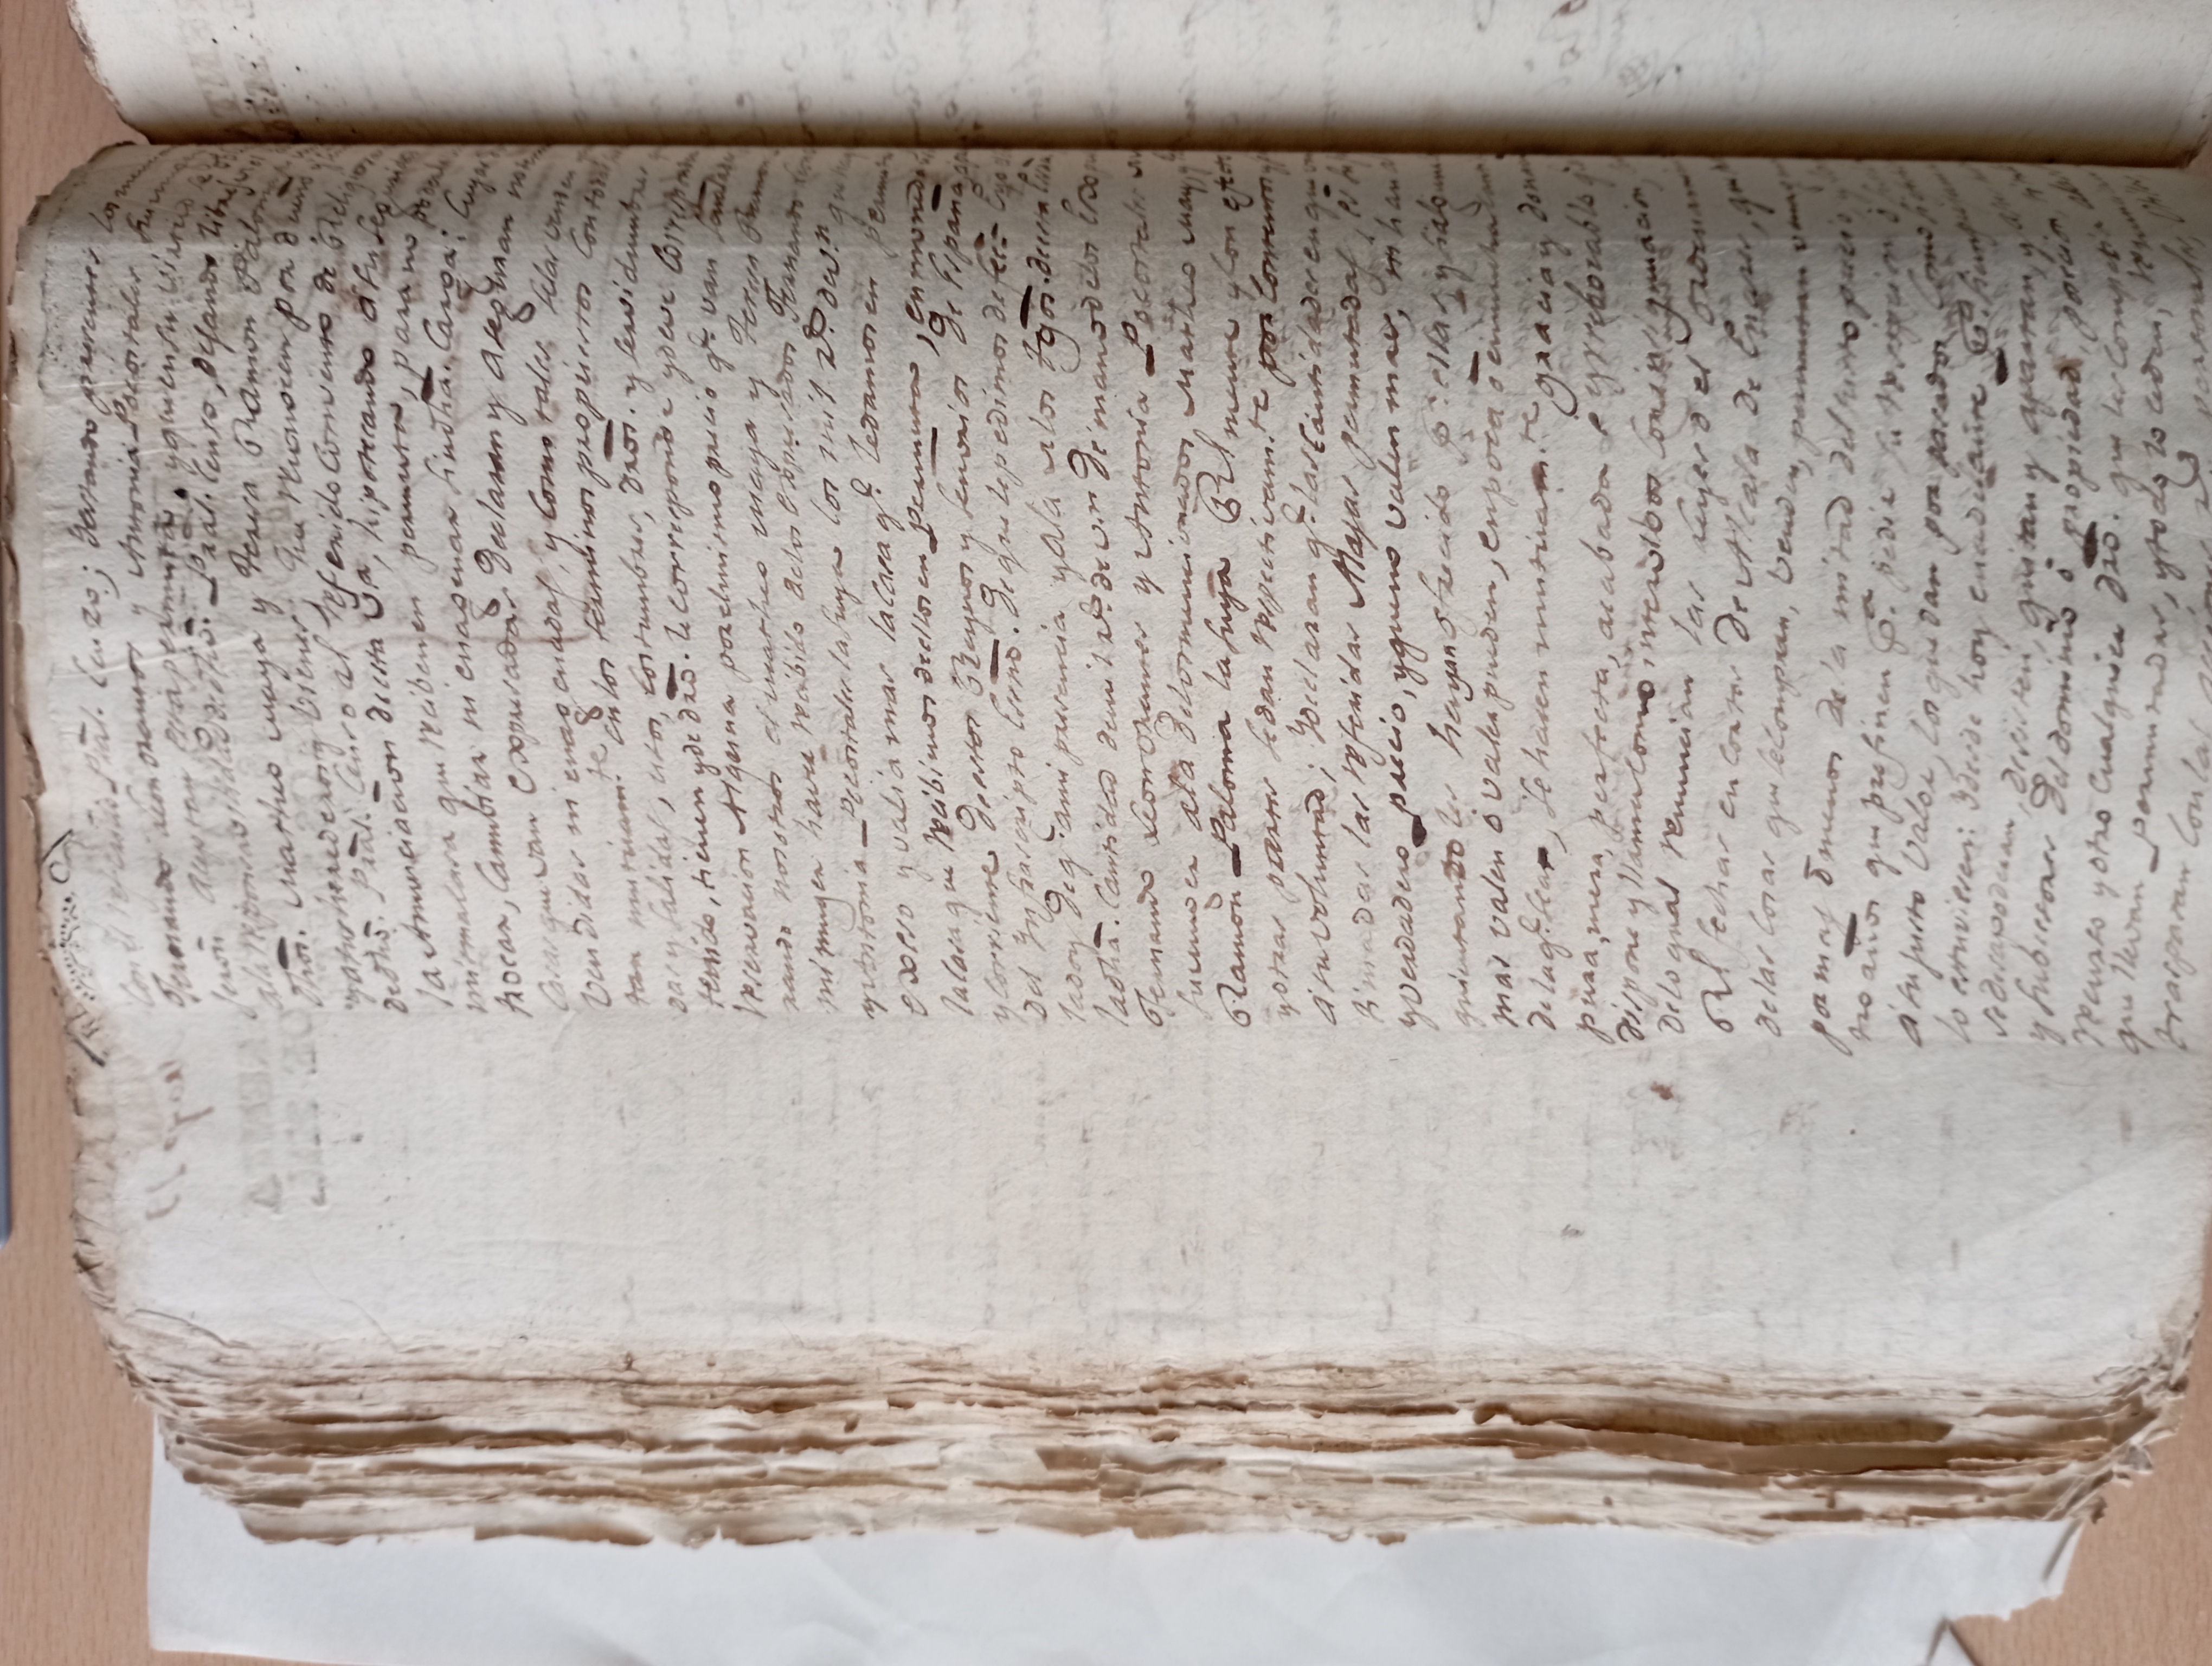 Con el referido Pral. Cenzo; Y estando presentes los
Fernando Leon Orantes y Antonia Pocostales su
jeron aceptan esta permuta, y que en su virtud
a la responsavilidad de dho. Pral. Censo, dejando libres
dhos. Matheo Maya y Teresa Ramon Paloma
y a sus herederos y vienes; Que reconocen por dueño
de dho. Pral. Censo al referido Convento de Religiosas
la Anunciacion de esta Va, hipotecando a su seguridad
misma casa que reciben en permuta, para no poderla
trocar, Cambiar ni enagenar sin dha. Carga: Cuyas
Casas que van expresadas Declaran y aseguran no
Vendidas ni enagenadas, y como tales se las venden
tan mutuam.te en los terminos propuestos con todas
das y salidas, usos, costumbres, dros. y servidumbres
tenido, tienen y de dro. le corresponde y deve corresponder
reservacion Alguna por el mismo precio q.e van
rando nosotros el Matheo Maya y Teresa Ramon
mi muger haver recibido de los expresados Fernando
y Antonia Pocostales la suya los mil rs. de v.n que
exceso y valia mas la casa q.e le damos en permuta
la casa que recibimos de ellos en permuta, en moneda
y corriente de estos Reynos y Señorios de España
del Ynfrascripto Essno. de que le pedimos de fee=
la doy de q.e a mi presencia y a la de los tgos. de esta
la dha. Cantidad de mil rs. de v.n de mano de los
Fernando Leon Orantes y Antonia Pocostales
su muger a la de los mencionados Matheo Maya y
Ramon Paloma la suya Rl mente y con efecto
y otras partes se dan respectivam.te por contentos
a su voluntad; Y declaran q.e las Cantidades en que
timadas las referidas Alajas permutadas, es
y verdadero precio, y que no valen mas, ni han
quien tando les hayan ofrecido p.r ellas y si alguna
mas valen o valer pueden, en poca o en mucha
de la q.e sea, se hacen mutuam.te gracia y
pura, mera, perfecta, acabada e yrrebocable q.e
dispone y llama como intervibos con insignuacion,
de lo qual renuncian las Leyes del Ordenamiento
Rl fechas en cortes de Alcala de Enares, que
de las cosas que se compran, venden, permutan
por mas o menos de la mitad del justo precio
tro años que prefinen p.a pedir su rescipcion o
a su justo Valor, los que dan por pasados como si
lo estuviesen: Y desde hoy en adelante p.a siempre
se desapoderan, desisten, quitan y apartan, y a
y subcesores del dominio o propiedad, posecion
recurso y otro cualquier dro. que les competia
que llevan permutadas, y todo lo ceden,
trasparan con las acciones rs. personales,